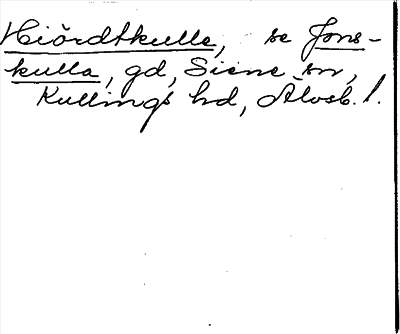 Hiördtkulle, se Jons-
kulla, gd, Siene sn,
Kullings hd, Älvsb. l.